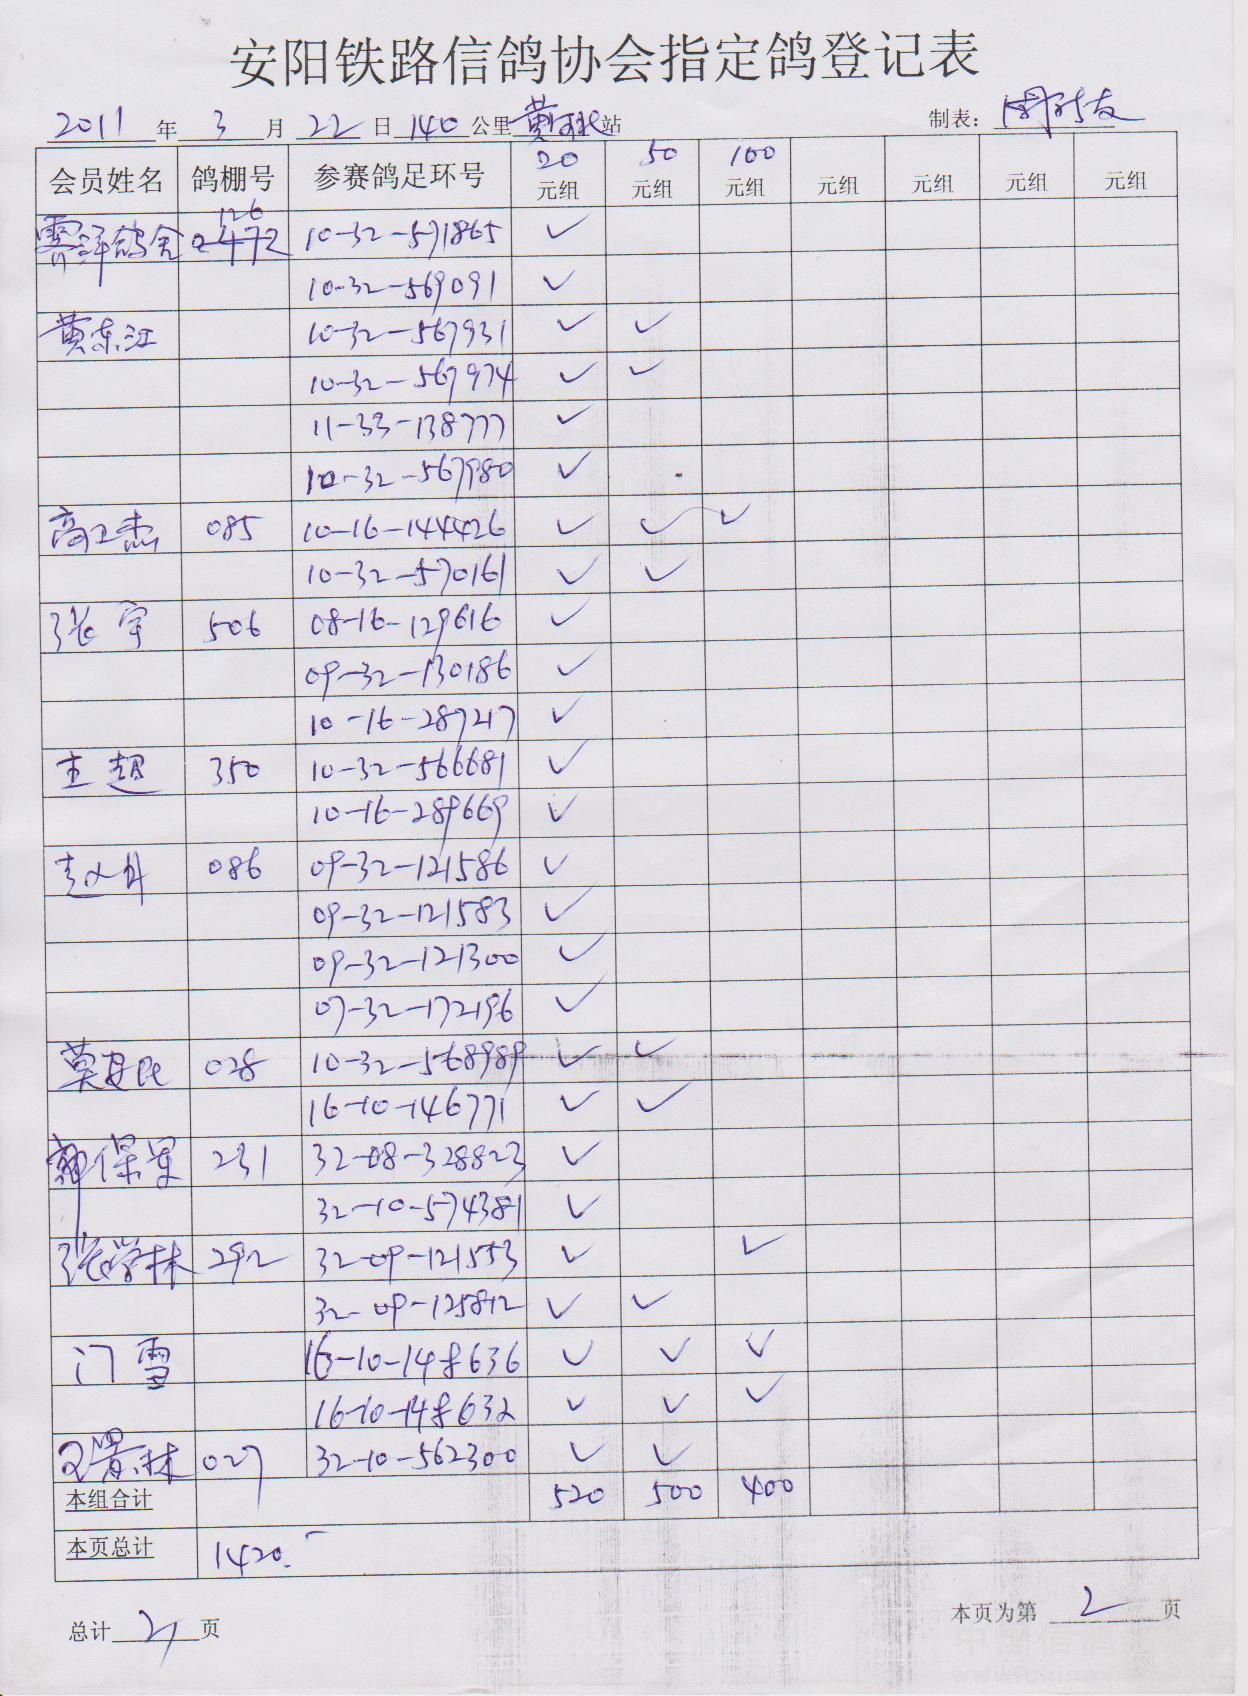 安阳铁路信鸽协会指定鸽登记表
2011 年 3 月 22 日 140 公里 黄河北 站 制表：
会员姓名 鸽棚号 参赛鸽足环号 20元组 50元组 100元组 元组 元组 元组 元组
霁洋鸽舍 126 0472 10-32-571865 ✓
10-32-569091 ✓
黄东江 10-32-567931 ✓ ✓
10-32-567974 ✓ ✓
11-33-138777 ✓
10-32-567980 ✓
高卫杰 085 10-16-144426 ✓ ✓ ✓
10-32-570161 ✓ ✓
张宇 506 08-16-129616 ✓
09-32-130186 ✓
10-16-287217 ✓
王超 350 10-32-566681 ✓
10-16-289669 ✓
086 09-32-121586 ✓
09-32-121583 ✓
09-32-121300 ✓
07-32-172196 ✓
莫安民 028 10-32-568989 ✓ ✓
16-10-146771 ✓ ✓
郭保军 231 32-08-328823 ✓
32-10-574381 ✓
张学林 292 32-09-121553 ✓ ✓
32-09-125812 ✓ ✓
门雪 16-10-148636 ✓ ✓ ✓
16-10-148632 ✓ ✓ ✓
王景林 027 32-10-562300 ✓ ✓
本组合计 520 500 400
本页总计 1420.-
总计 2 页 本页为第 2 页